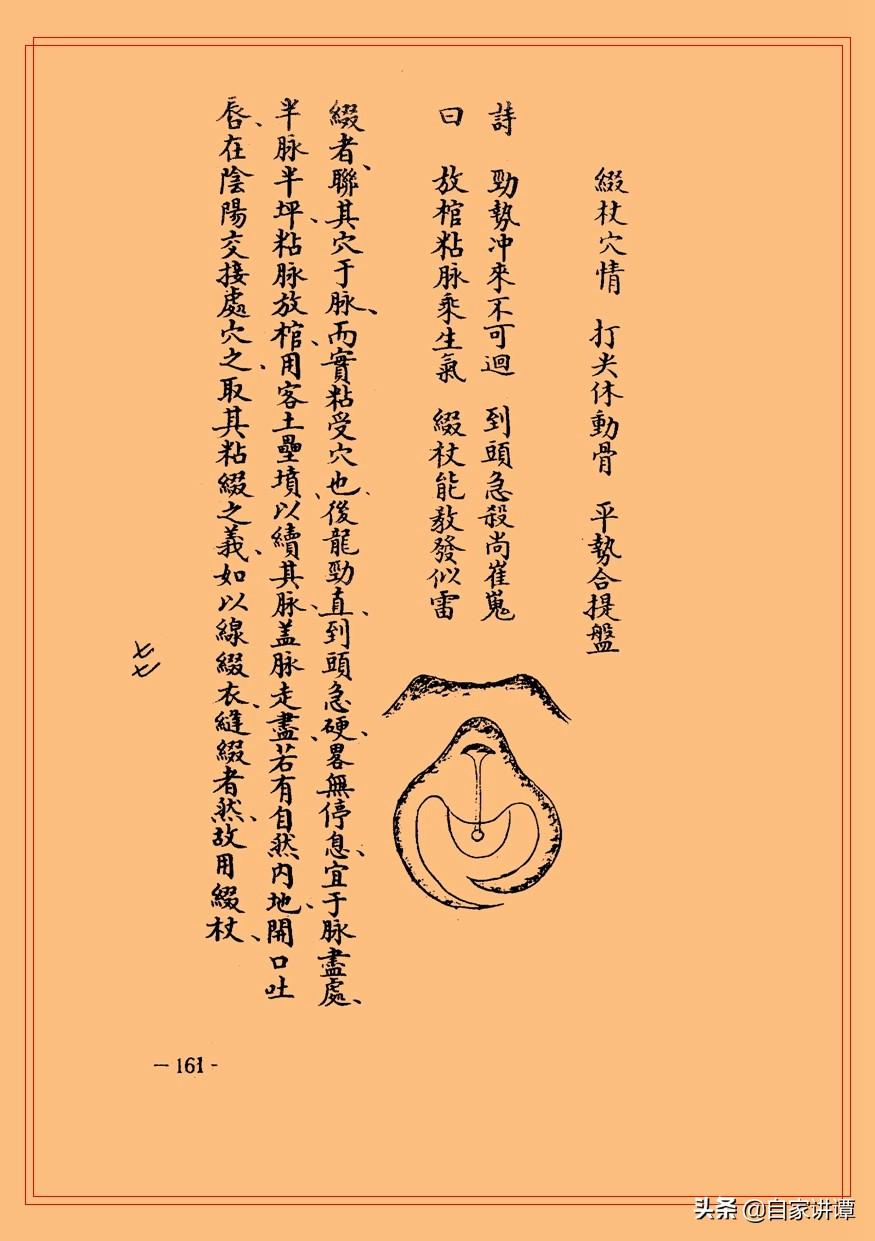 綴杖穴情　打尖休動骨　平勢合提盤
詩　勁勢冲來不可迴　到頭急殺尚崔嵬
曰　放棺粘脉乘生氣　綴杖能教發似雷
綴者、聯其穴于脉、而實粘受穴也、後龍勁直、到頭急硬、畧無停息、宜于脉盡處、
半脉半坪、粘脉放棺、用客土壘墳、以續其脉、盖脉走盡、若有自然内地、開口吐
唇、在陰陽交接處穴之、取其粘綴之義、如以線綴衣、縫綴者然、故用綴杖、
七七
－161-
头条 @自家讲谭